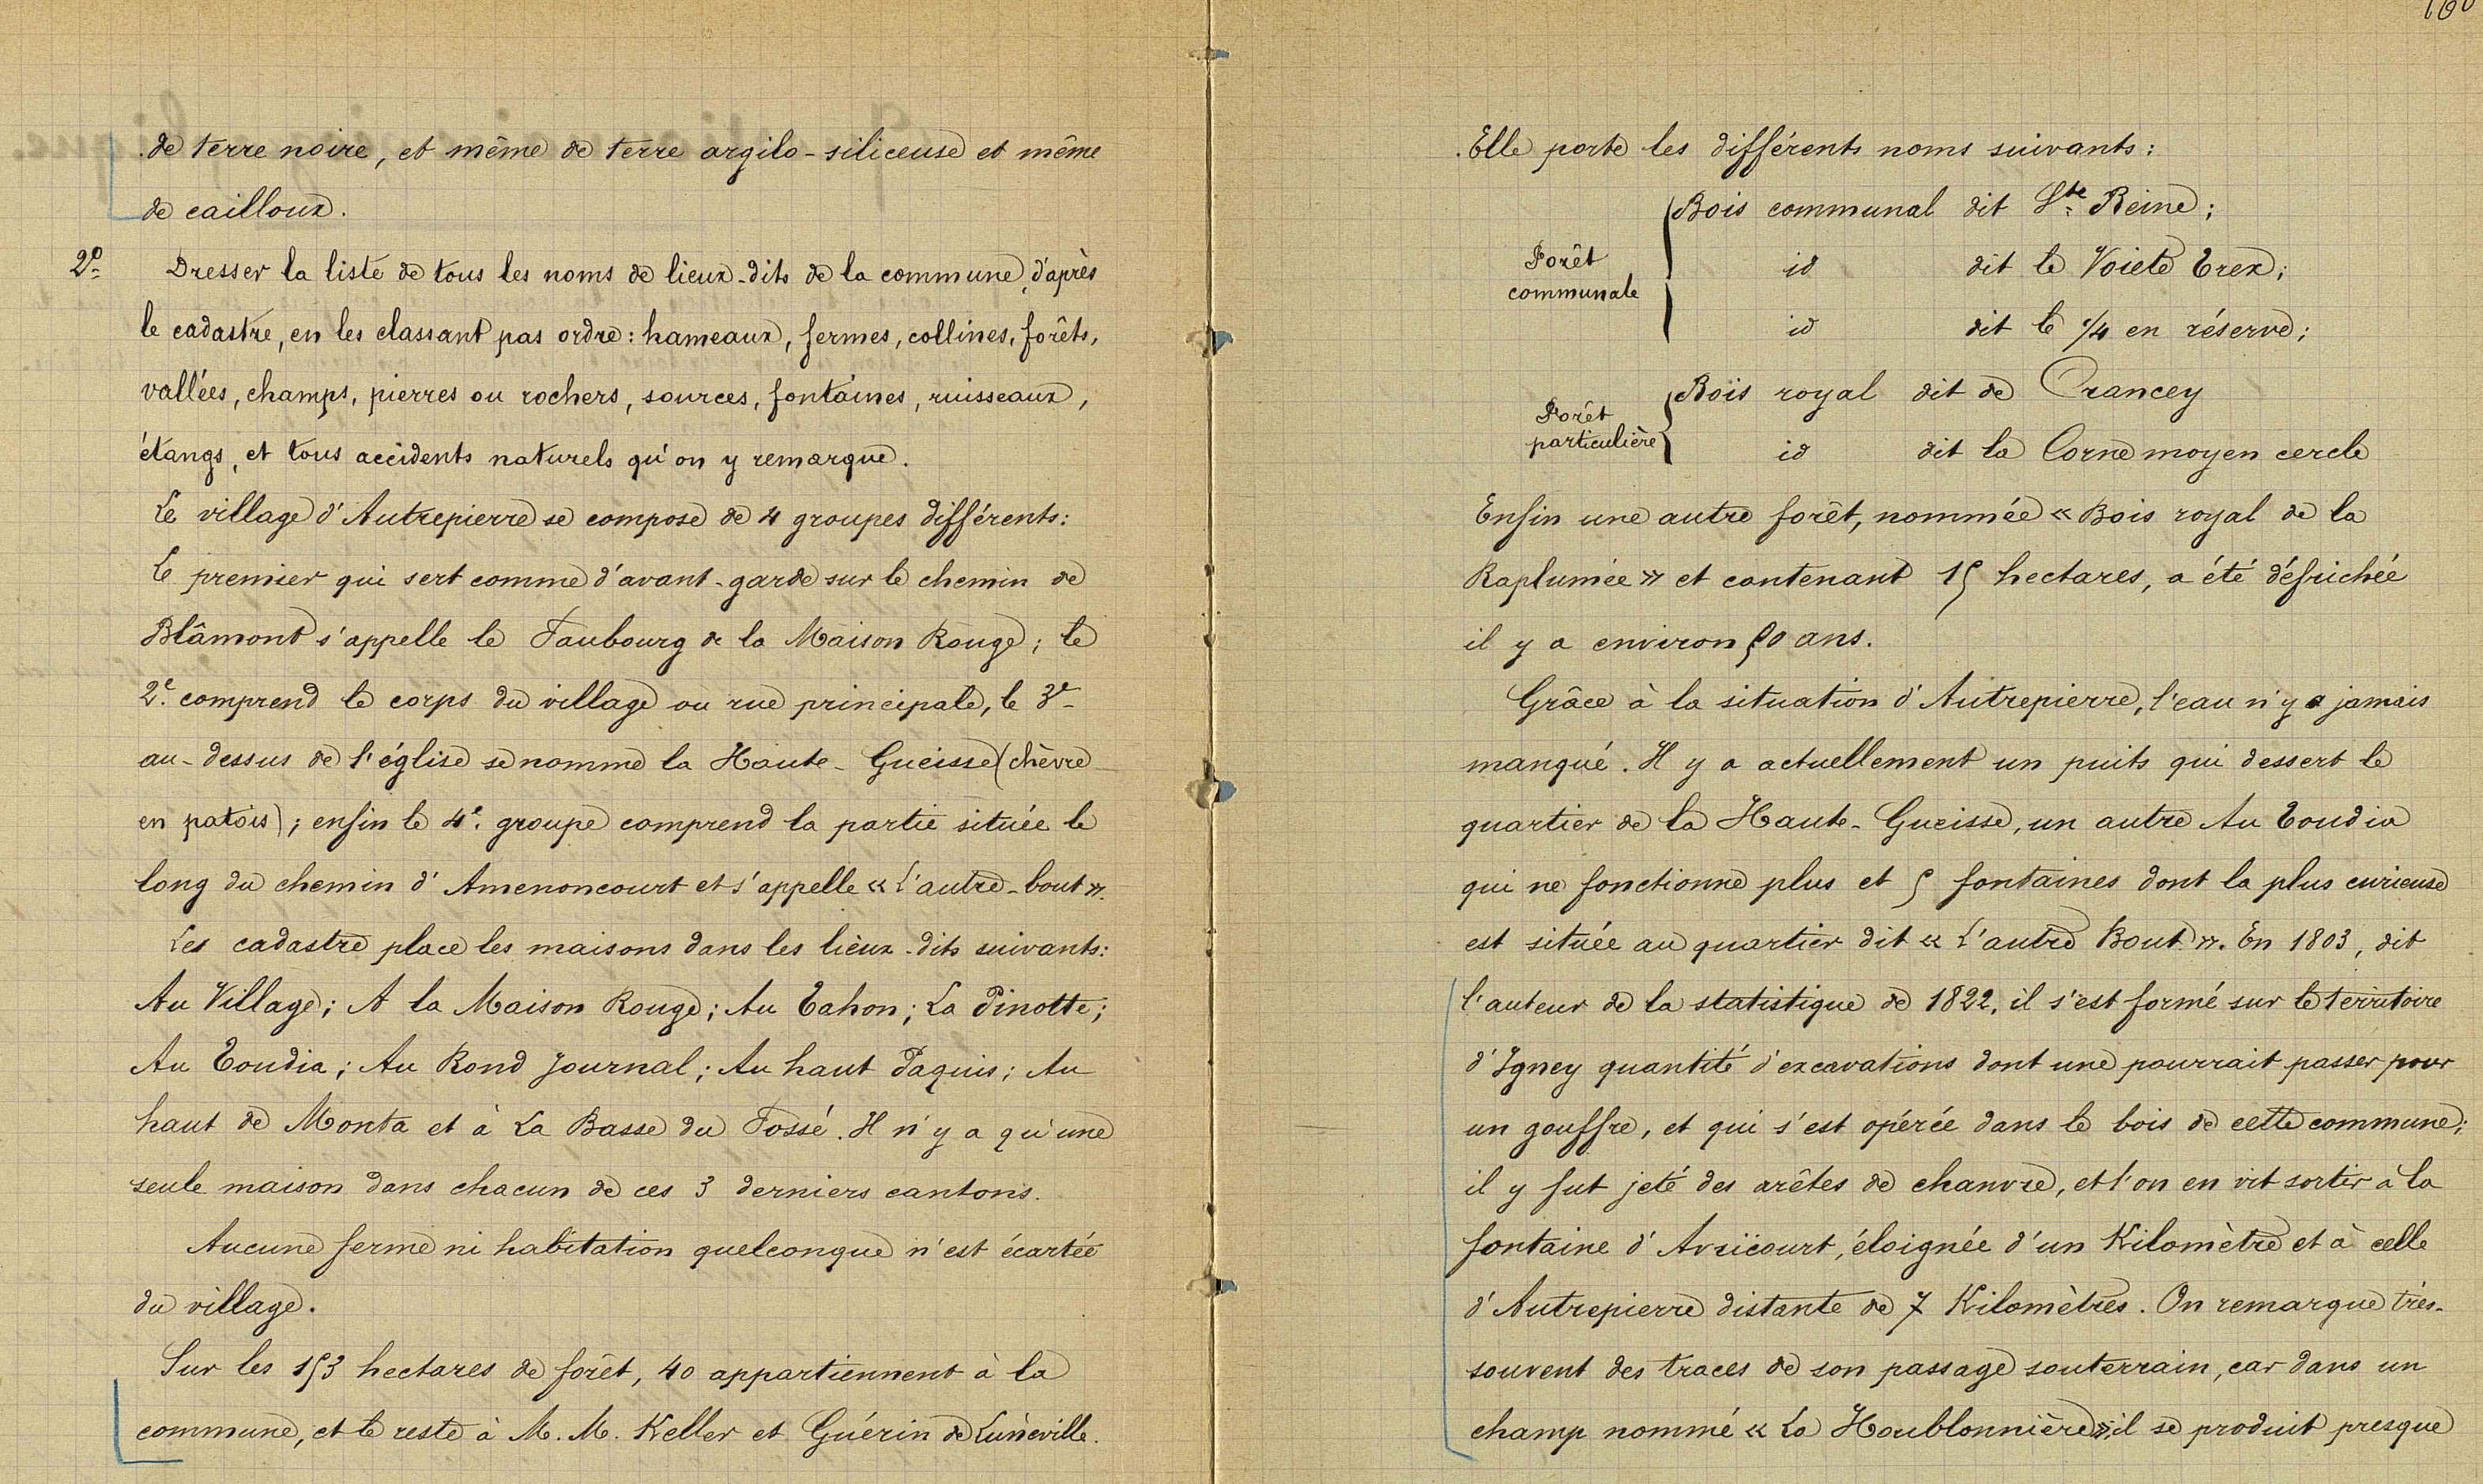 de terre noire, et même de terre argilo-siliceuse et même
de cailloux.
2º Dresser la liste de tous les noms de lieux-dits de la commune, d'après
le cadastre, en les classant pas ordre: hameaux, fermes, collines, forêts,
vallées, champs, pierres ou rochers, sources, fontaines, ruisseaux,
étangs, et tous accidents naturels qu'on y remarque.
Le village d'Autrepierre se compose de 4 groupes différents:
Le premier qui sert comme d'avant-garde sur le chemin de
Blâmont s'appelle le Faubourg de la Maison Rouge; le
2e comprend le corps du village ou rue principale, le 3e
au-dessus de l'église se nomme la Haute-Gueisse (chèvre
en patois); enfin le 4e groupe comprend la partie située le
long du chemin d'Amenoncourt et s'appelle « L'autre-bout ».
Les cadastre place les maisons dans les lieux-dits suivants:
Au Village; A la Maison Rouge; Au Tahon; La Pinotte;
Au Toudia; Au Rond Journal; Au haut Paquis; Au
haut de Monta et à La Basse du Fossé. Il n'y a qu'une
seule maison dans chacun de ces 3 derniers cantons.
Aucune ferme ni habitation quelconque n'est écartée
du village.
Sur les 153 hectares de forêt, 40 appartiennent à la
commune, et le reste à M. M. Keller et Guérin de Lunéville.
Elle porte les différents noms suivants:
Bois communal dit Ste Reine;
Forêt communale id dit le Voiele Trex;
id dit le 1/4 en réserve;
Bois royal dit de Crancey
Forêt particulière id dit la Corne moyen cercle
Enfin une autre forêt, nommée « Bois royal de la
Raplumée » et contenant 15 hectares, a été défrichée
il y a environ 50 ans.
Grâce à la situation d'Autrepierre, l'eau n'y a jamais
manqué. Il y a actuellement un puits qui dessert le
quartier de la Haute-Gueisse, un autre Au Toudia
qui ne fonctionne plus et 5 fontaines dont la plus curieuse
est située au quartier dit « L'autre Bout ». En 1803, dit
l'auteur de la statistique de 1822, il s'est formé sur le territoire
d'Igney quantité d'excavations dont une pourrait passer pour
un gouffre, et qui s'est opérée dans le bois de cette commune;
il y fut jeté des arêtes de chanvre, et l'on en vit sortir à la
fontaine d'Avricourt, éloignée d'un Kilomètre et à celle
d'Autrepierre distante de 7 Kilomètres. On remarque très-
souvent des traces de son passage souterrain, car dans un
champ nommé « La Houblonnière », il se produit presque